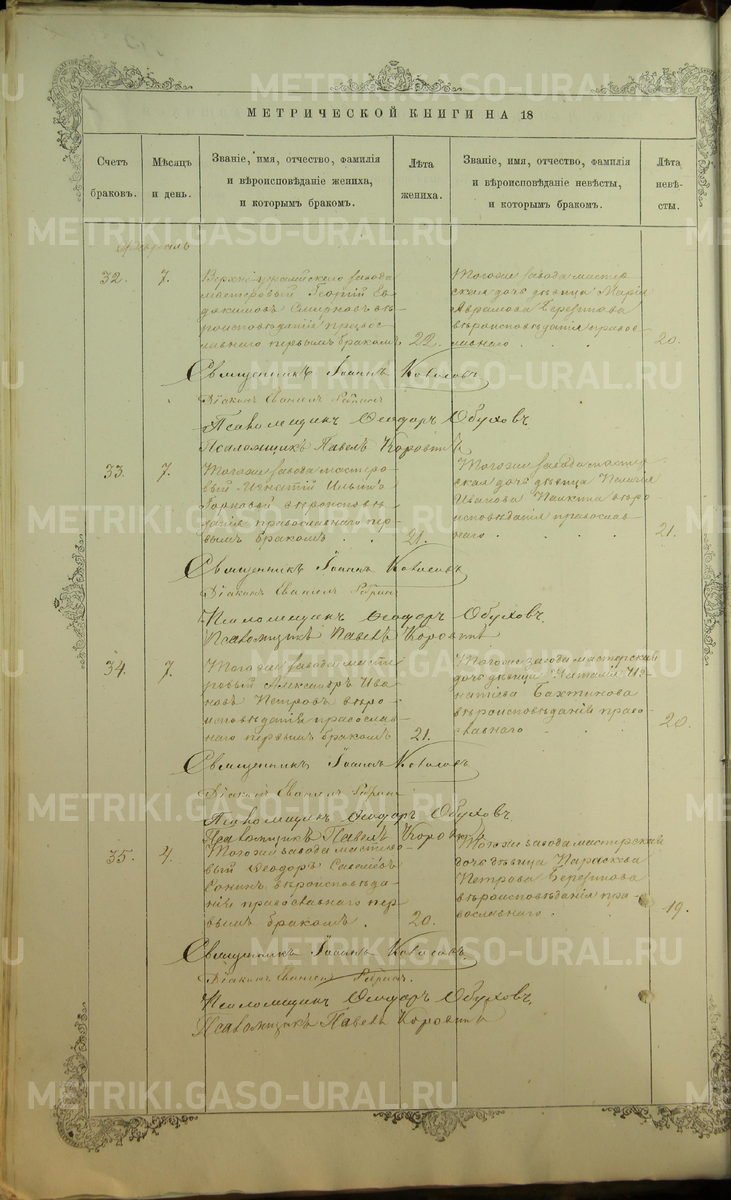 МЕТРИЧЕСКОЙ КНИГИ НА 18
Счетъ
браковъ.
Мѣсяцъ
и день.
Званіе, имя, отчество, фамилія
и вѣроисповѣданіе жениха,
и которымъ бракомъ.
Лѣта
жениха.
Званіе, имя, отчество, фамилія
и вѣроисповѣданіе невѣсты,
и которымъ бракомъ.
Лѣта
невѣ-
сты.
Февраль
32.
7.
завода
мастеровый Георгій Ев-
докимовъ Смирновъ вѣ-
роисповѣданія правос-
лавнаго первымъ бракомъ.
22.
Тогоже завода масте-
рская дочь дѣвица Марія
Аврамова Березикова
вѣроисповѣданія право-
славнаго
20.
Священникъ Іоаннъ
Діаконъ
Псаломщикъ Ѳеодоръ Обуховъ
Псаломщикъ Павелъ
33.
7.
Тогоже завода мастеро-
вый Игнатій Ильинъ
вѣроисповѣ-
данія православнаго пер-
вымъ бракомъ
21.
Тогоже завода масте-
рская дочь дѣвица
Иванова вѣро-
исповѣданія православ-
наго
21.
Священникъ Іоаннъ
Діаконъ
Псаломщикъ Ѳеодоръ Обуховъ
Псаломщикъ Павелъ
34.
7.
Тогоже завода масте-
ровый Александръ Ива-
новъ Петровъ вѣро-
исповѣданія православ-
наго первымъ бракомъ
21.
Тогоже завода мастерская
дочь дѣвица Наталія Иг-
натіева Бахтикова
вѣроисповѣданія право-
славнаго
20.
Священникъ Іоаннъ
Діаконъ
Псаломщикъ Ѳеодоръ Обуховъ
Псаломщикъ Павелъ
35.
4.
Тогоже завода мастеро-
вый Ѳеодоръ
вѣроисповѣда-
нія православнаго пер-
вымъ бракомъ.
20.
Тогоже завода мастерская
дочь дѣвица Параскева
Петрова Березикова
вѣроисповѣданія пра-
вославнаго.
19.
Священникъ Іоаннъ
Діаконъ
Псаломщикъ Ѳеодоръ Обуховъ
Псаломщикъ Павелъ
METRIKI.GASO-URAL.RU